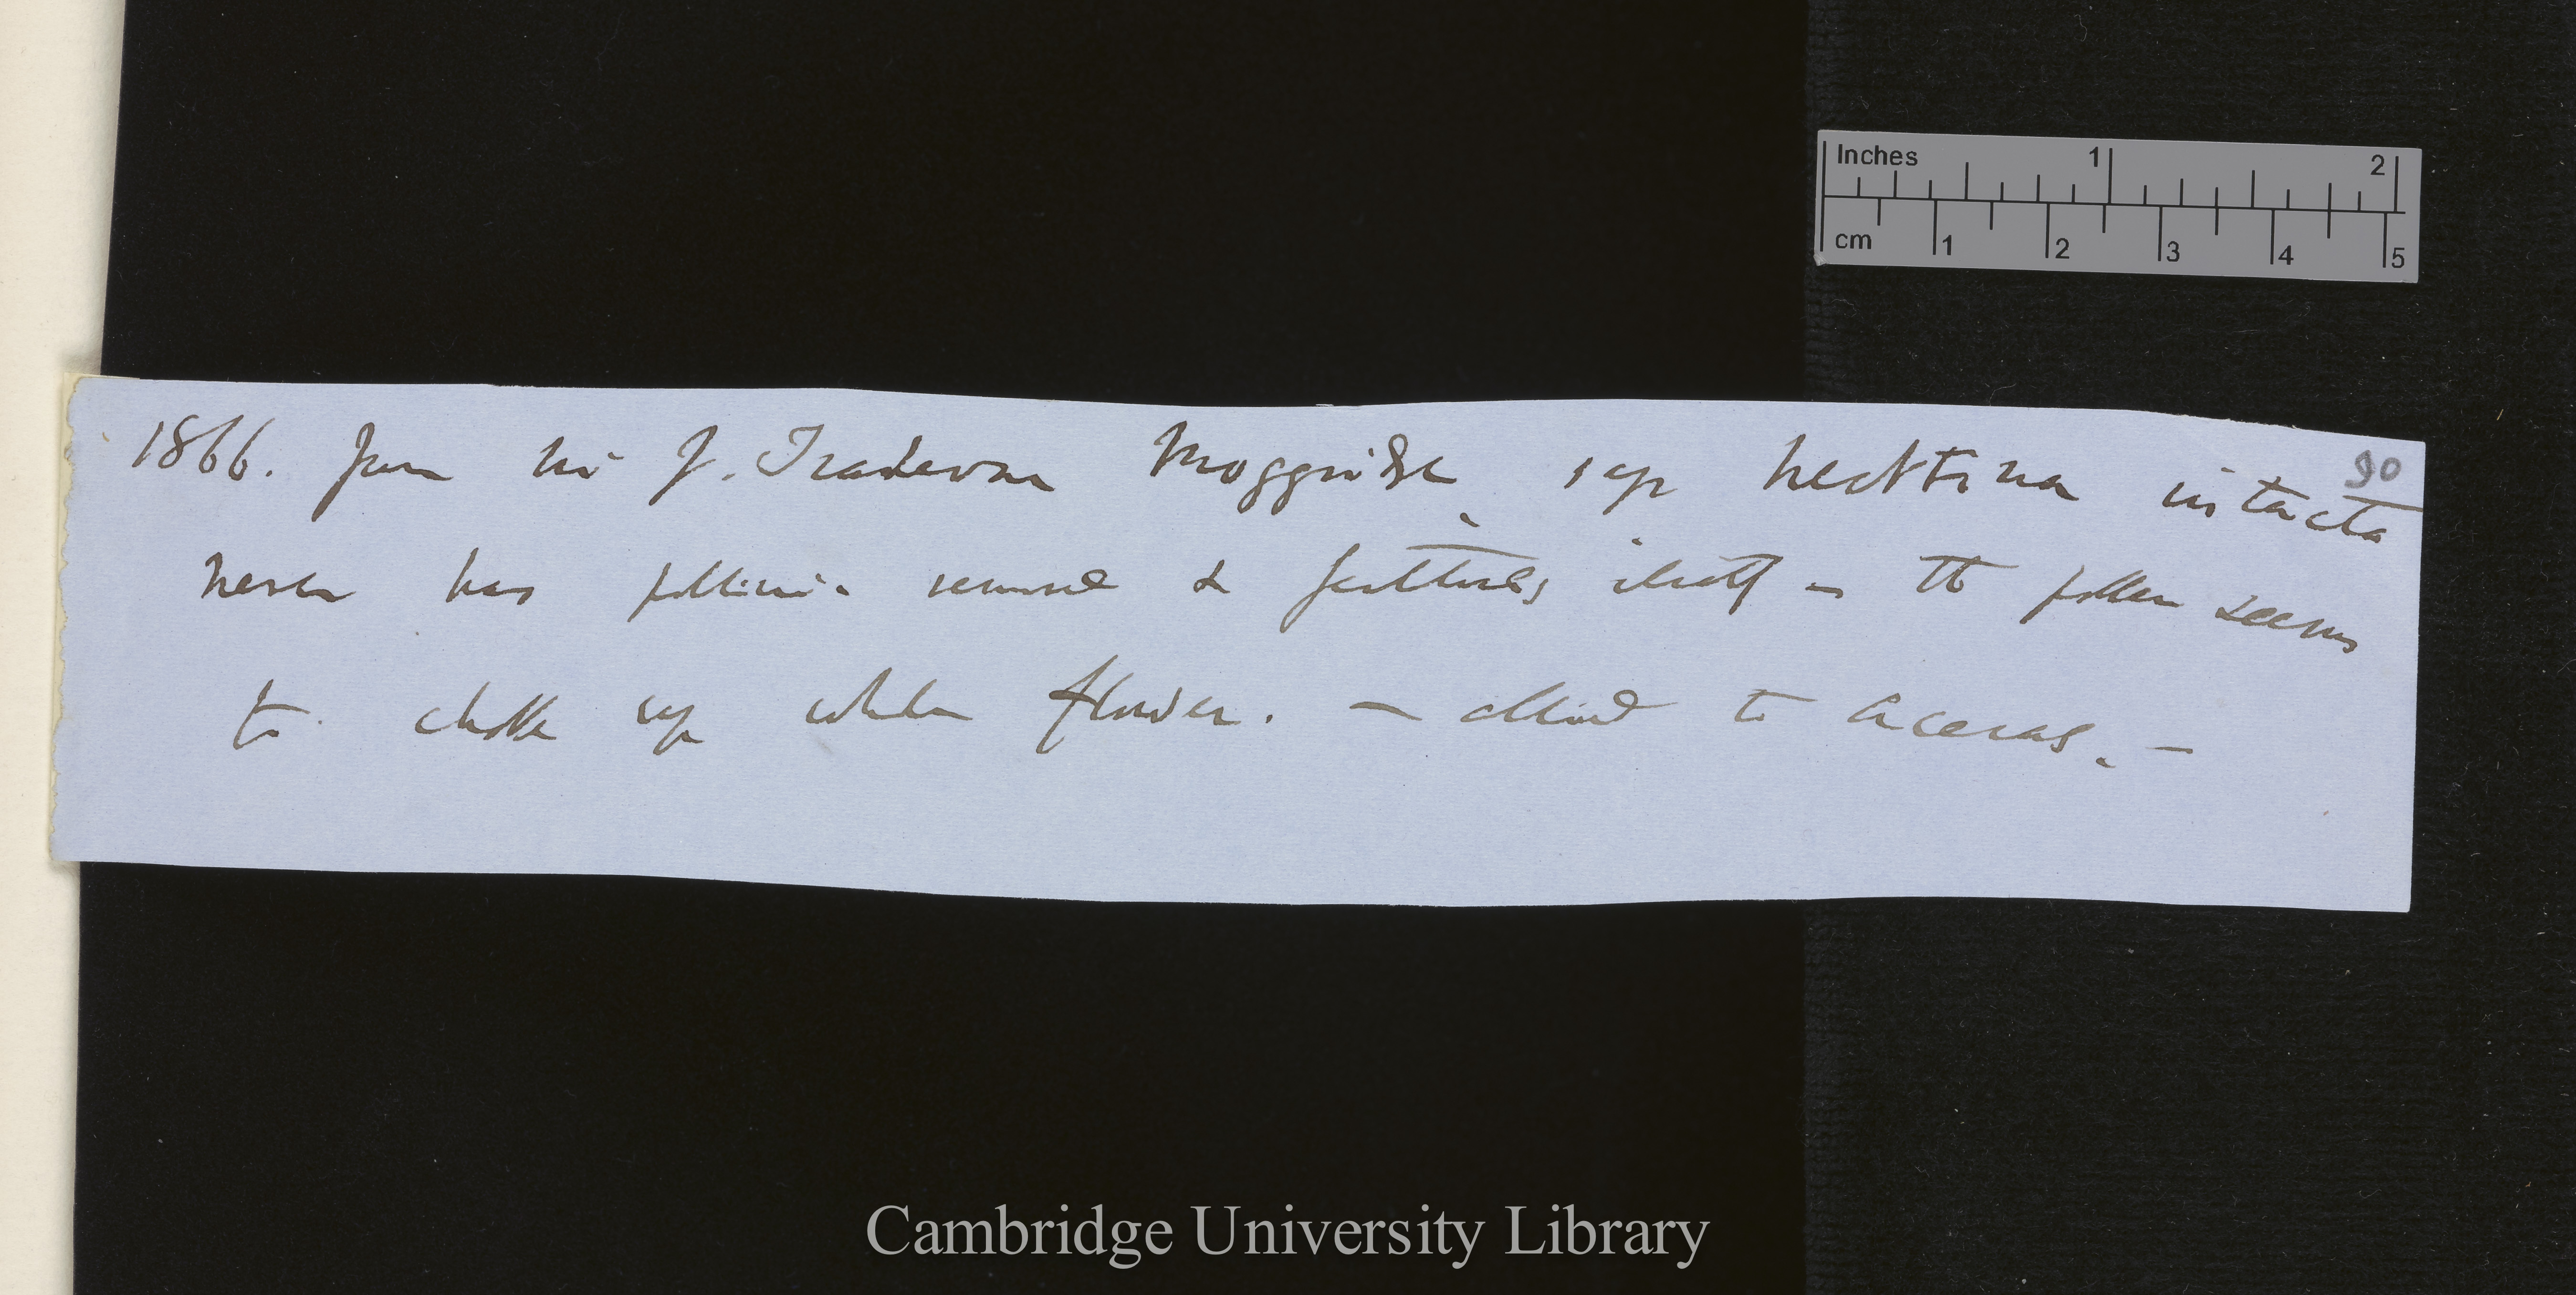 Inches 1 2
cm 1 2 3 4 5
90
1866. June Mr J. Traherne Moggridge says Neottinea intacta
never has pollinia removed & fertilises itself — the pollen seems
to choke up whole flower. — allied to Aceras. —
Cambridge University Library